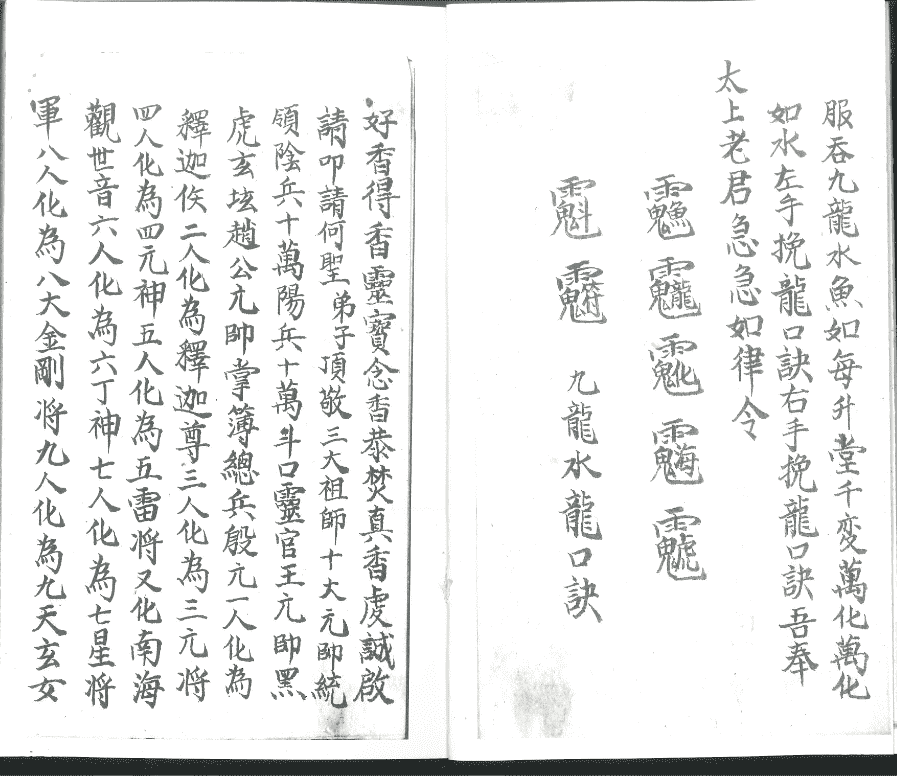 服吞九龍水魚如每升堂千変萬化萬化
如水左手挽龍口訣右手挽龍口訣吾奉
太上老君急急如律令
九龍水龍口訣
好香得香靈寶念香恭焚真香虔誠啟
請叩請何聖弟子頂敬三大祖師十大元帥統
領陰兵十萬陽兵十萬斗口靈官王元帥黑
虎玄坛趙公元帥掌簿總兵殷元一人化為
釋迦佚二人化為釋迦尊三人化為三元将
四人化為四元神五人化為五雷将又化南海
觀世音六人化為六丁神七人化為七星将
軍八人化為八大金剛将九人化為九天玄女